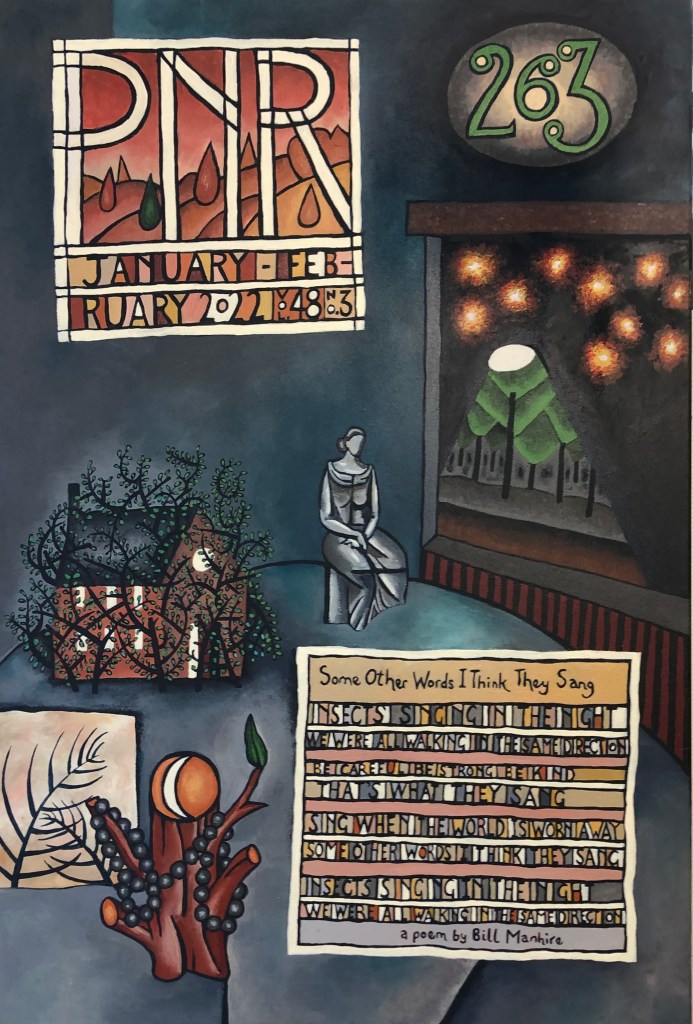 PNR
263
JANUARY-FEB-
RUARY 2022 VOL.48 NO.3
Some Other Words I Think They Sang
INSECTS SINGING IN THE NIGHT
WE WERE ALL WALKING IN THE SAME DIRECTION
BE CAREFUL BE STRONG BE KIND
THAT'S WHAT THEY SANG
SING WHEN THE WORLD IS WORN AWAY
SOME OTHER WORDS I THINK THEY SANG
INSECTS SINGING IN THE NIGHT
WE WERE ALL WALKING IN THE SAME DIRECTION
a poem by Bill Manhire